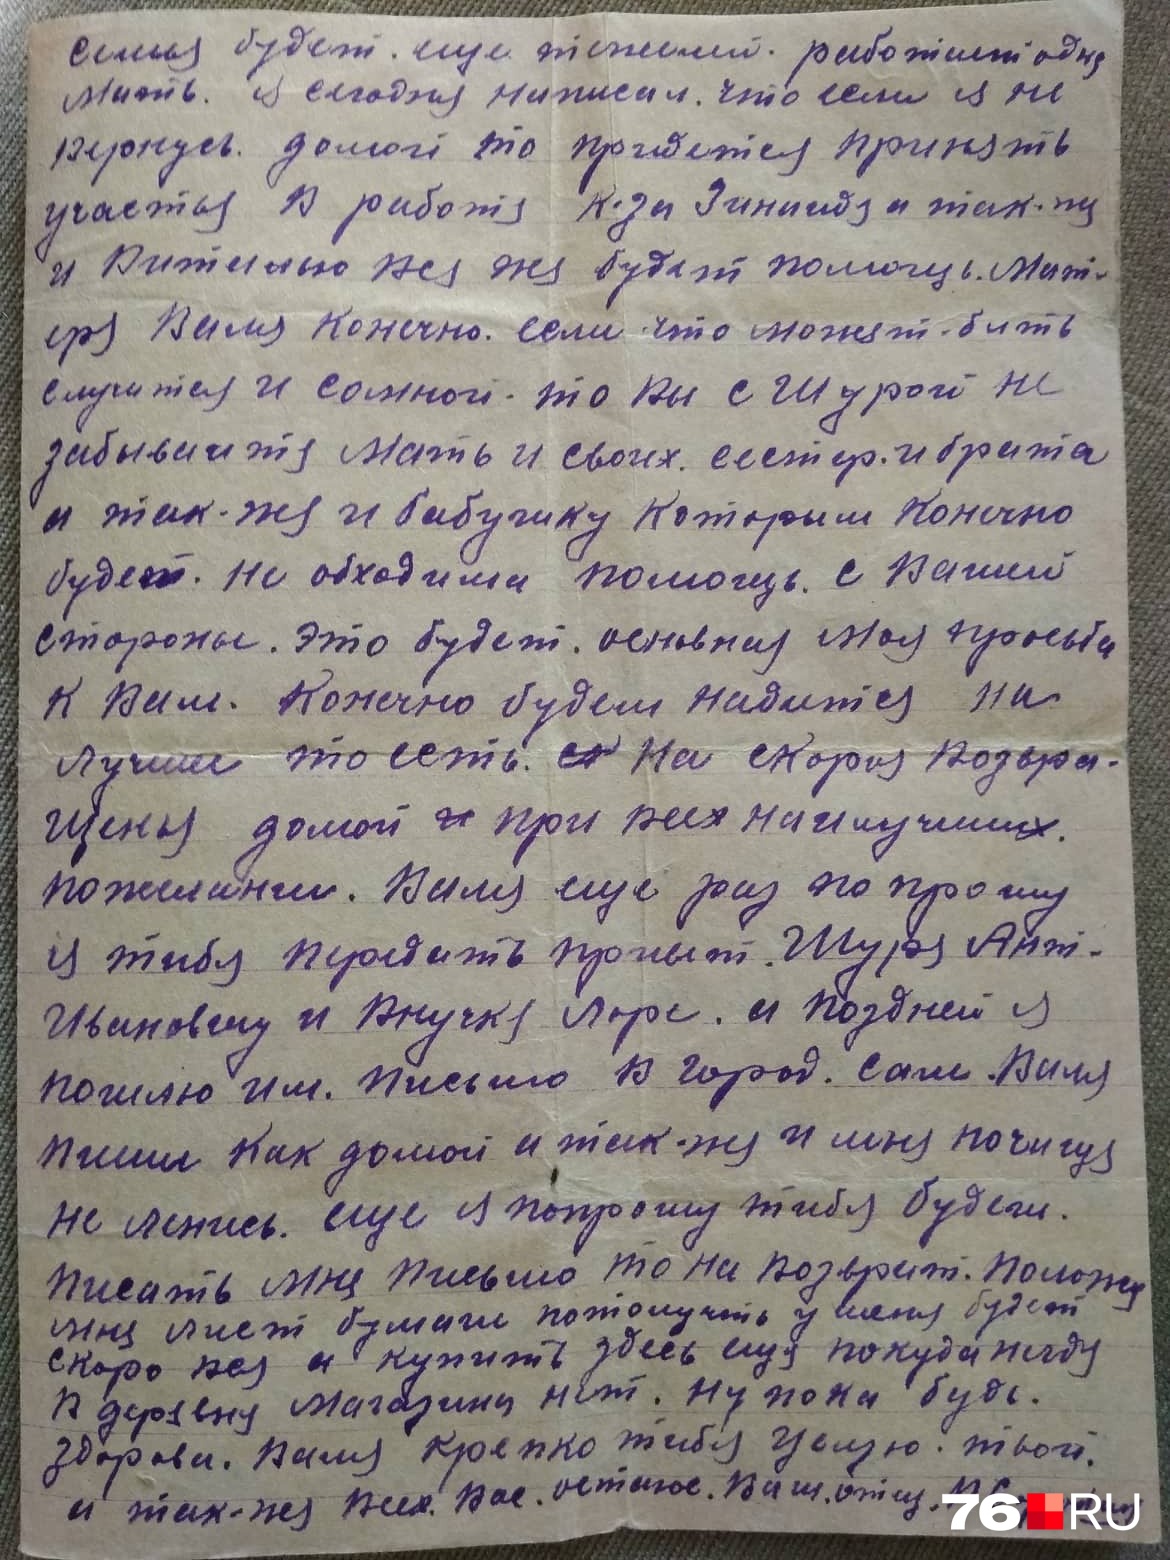 семья будет. еще тяжелей. работает одня
Мать. я сегодня написал. что если я не
вернусь. домой то придется принять
участья в работя к-за Зинаидя а так-жа
и Виталью вся жя будет помощь. Мат-
еря Валя Конечно. если что можят-бить
случится и самной. то Вы с Шурой не
забывайтя Мать и своих. сестер. и брата
а так-жя и бабушку Которым Конечно
будет. не обходима помощь. с Вашей
стороны. это будет. основная Моя просьба
к Вам. Конечно будем надится на
лучши то есть. на скорая возвра-
щенья домой и при всех наилучших.
пожелании. Валя еще раз попрошу
я тибя передать привет. Шуря Ант-
Ивановму и Внучкя Лоре. а поздней я
пошлю им. письмо в город. сам. Валя
пиши как домой а так-жя и мня почищя
не ленись. еще я попрошу тибя будеш.
писать мня письмо то на возврат. положя
мня лист бумаги потомучть у меня будет
скоро вся а купить здесь ещя покуда негдя
в деревня магазина нет. ну пока будь.
здорова. Валя крепко тибя целую. твой.
а так-жя всех. вас. остаюс. Ваш. отец.
76.RU